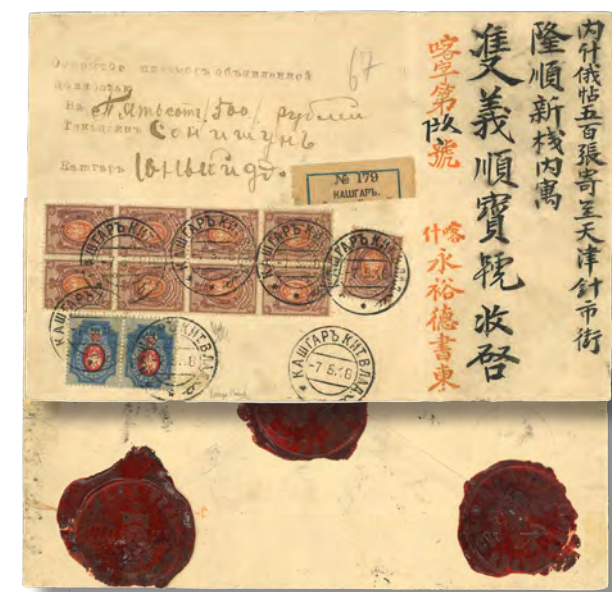 Открытое письмо съ объявленной
цѣнностью
На Пятьсотъ /500/ рублей
Тяньцзинъ
Кашгаръ Юньюйдэ.
67
№ 179
КАШГАРЪ.
КАШГАРЪ КИТ. ВЛАД.
-7 5.18
內什俄帖五百張寄至天津針市街
隆順新棧內寓
雙義順寶號收啓
喀字第 號
喀什永裕德書柬